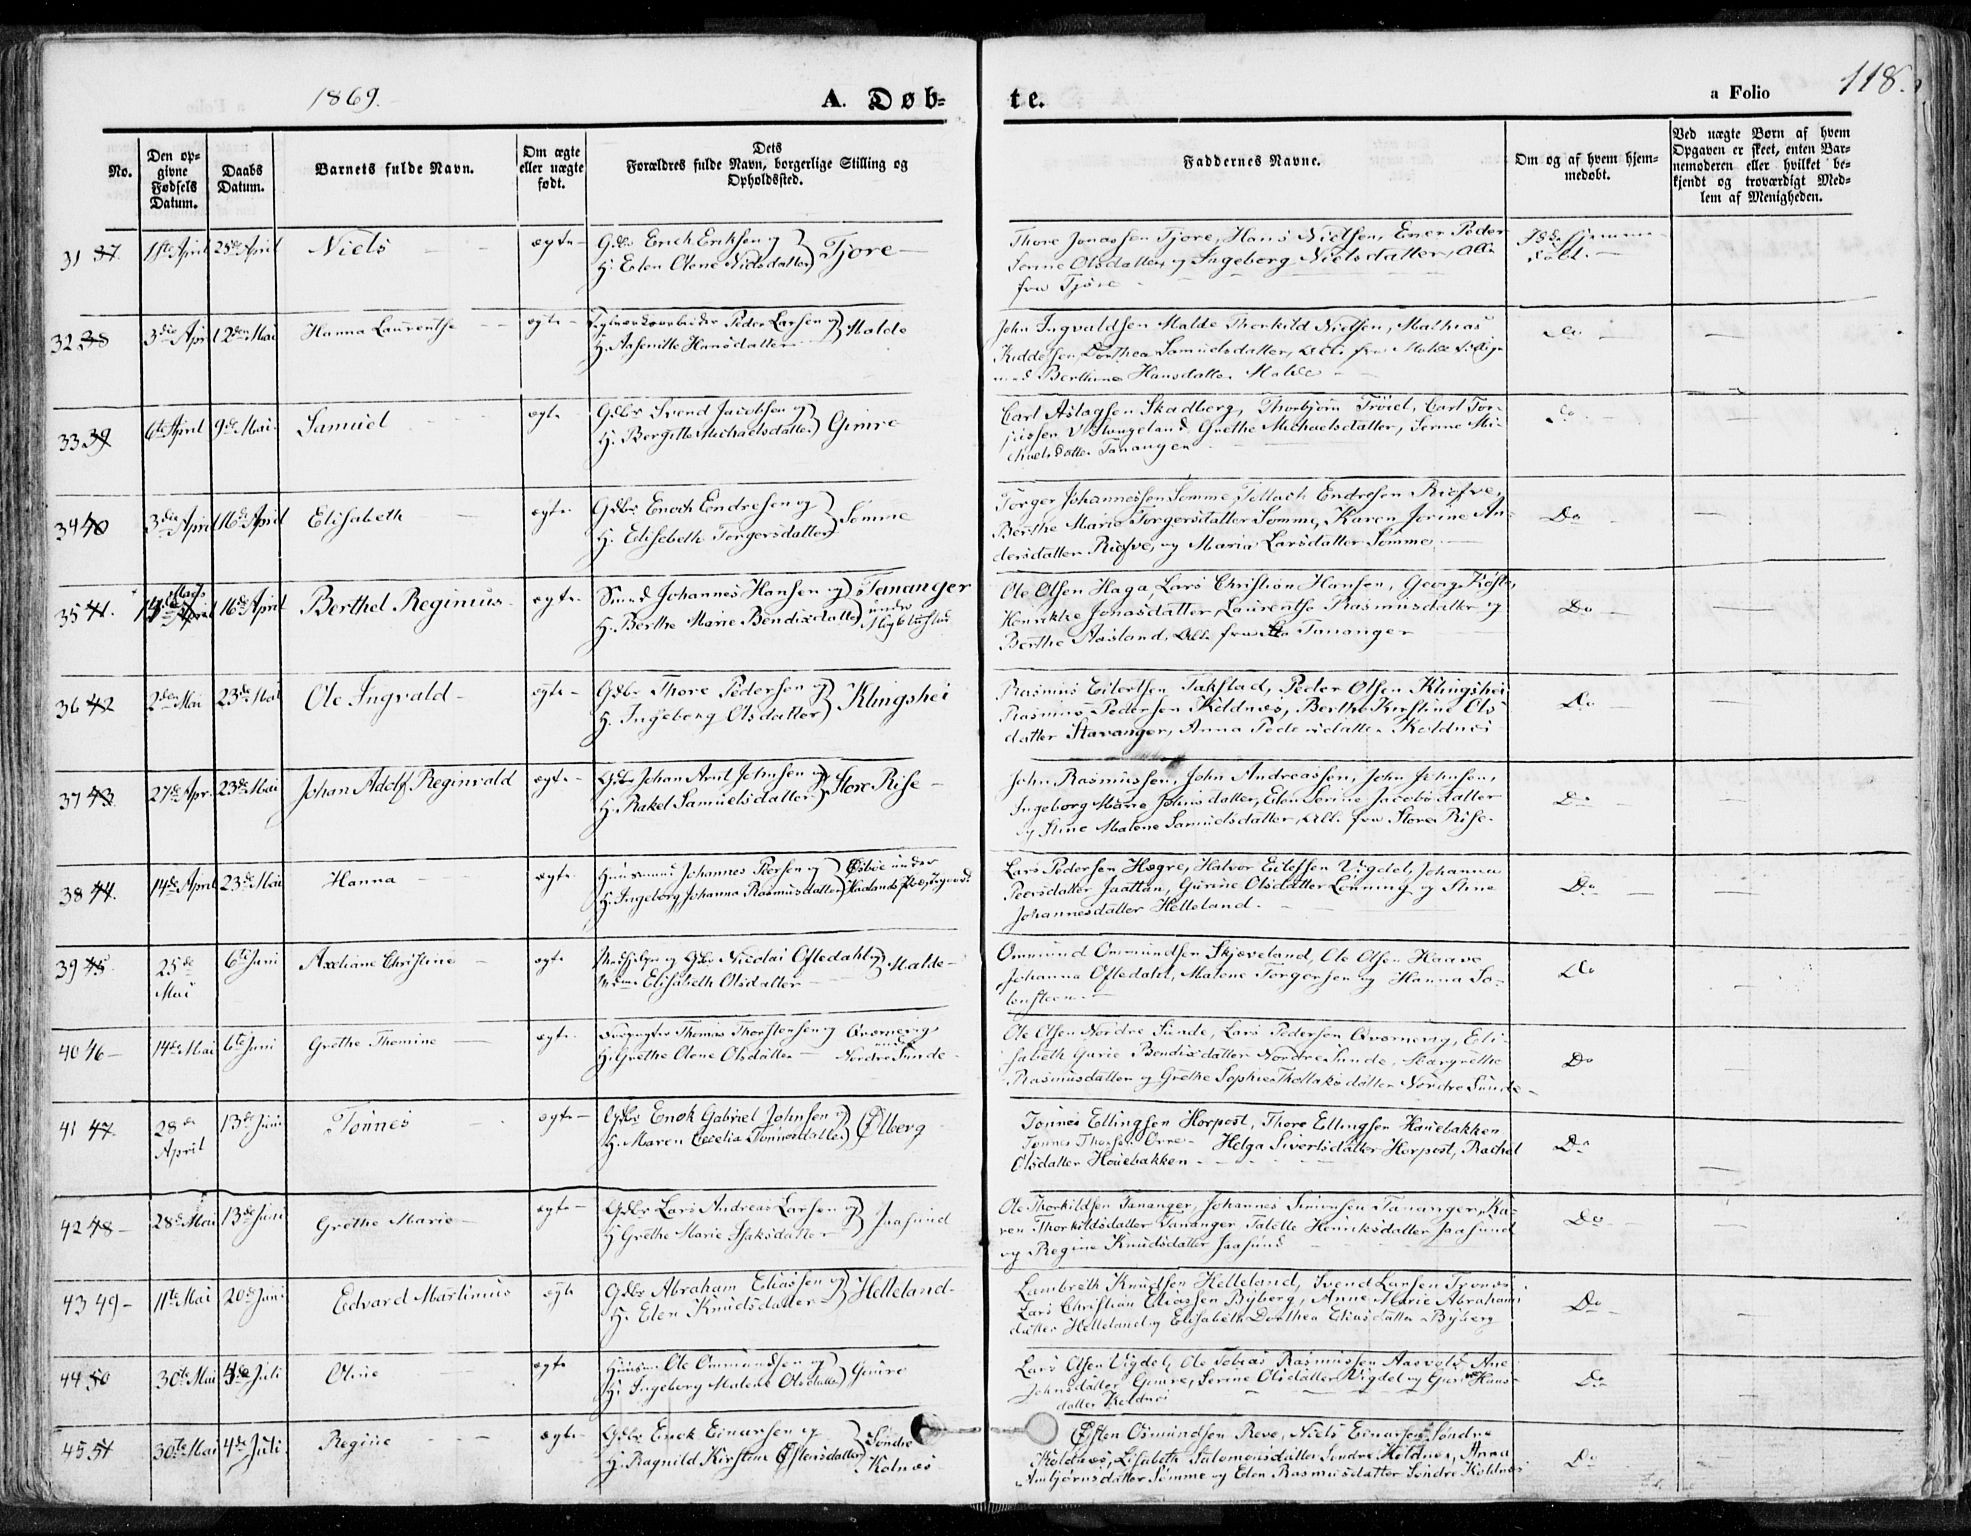 1869.
A. Døb-
te.
a Folio
118.
No.
Den op-
givne
Fødsels
Datum.
Daabs
Datum.
Barnets fulde Navn.
Om ægte
eller uægte
født.
Dets
Forældres fulde Navn, borgerlige Stilling og
Opholdssted.
Faddernes Navne.
Om og af hvem hjem-
medøbt.
Ved uægte Børn af hvem
Opgaven er skeet, enten Bar-
nemoderen eller hvilket be-
kjendt og troværdigt Med-
lem af Menigheden.
31 37. 1ste April 25de April Niels ægte Gdbr Erich Eriksen og
H. Elen Olene Nielsdatter Tjore
Thore Jonassen Tjore, Hans Nielsen, Peder
Serine Olsdatter, og Ingeborg Nielsdatter, Alle
fra Tjore
hjemme-
døbt.
32 38 3die April 2den Mai Hanna Laurentse ægte Peder Larsen og
H. Aasenille Hansdatter Malde
John Ingvaldsen Malde Thorkild Nielsen, Mathias
Dorthea Samuelsdatter, Alle fra Malde
Berthine Hansdatter Malde
Do
33 39 6te April 9de Mai Samuel ægte Gdbr Svend Jacobsen og
H. Bergitte Michaelsdatter Gimre
Carl Aslagsen Skadberg, Thorbjørn Carl Tor-
Stangeland Grethe Michaelsdatter, Serine Mi-
chaelsdatter Tananger
Do
34 40 3die April 16de April Elisabeth ægte Gdbr Enoch Endresen og
H. Elisebeth Torgersdatter Sømme
Torger Johannessen Sømme, Tollach Endresen
Berthe Marie Torgersdatter Sømme, Karen Jorine An-
dersdatter og Maria Larsdatter Sømme
Do
35 41. 16de April Berthel Reginius ægte Johannes Hansen og
H. Berthe Marie Bendixdatter Tananger
under
Ole Olsen Haga, Lars Christian Hansen, Georg
Jonasdatter, Laurentse Rasmusdatter og
Berthe Aasland, Alle fra Tananger
Do
36 42 2den Mai 23de Mai Ole Ingvald ægte Gdbr Thore Pedersen og
H. Ingeborg Olsdatter Klingshei
Rasmus Eilertsen Takstad, Peder Olsen Klingshei
Rasmus Pedersen Koldnæs, Berthe Kirstine Ols-
datter Stavanger, Anna Pedersdatter Koldnæs
Do
37 43. 27de Apr. 23de Mai Johan Adolf Reginvald ægte Gdbr Johan Arnt Johnsen og
H. Rakel Samuelsdatter Store Rise
John Rasmussen, John Andreassen, John Johnsen,
Ingeborg Marie Johnsdatter, Elen Serine Jacobsdatter
og Stine Malene Samuelsdatter, Alle fra Store Rise.
Do
38 44. 14de April 23de Mai Hanna ægte Huusmand Johannes Peersen og
H. Ingeborg Johanna Rasmusdatter under
Lars Pedersen Hogre, Halvor Eilefsen Vigdel, Johanna
Peersdatter Jaatten, Gurine Olsdatter Lønning og Stine
Johannesdatter Helleland.
Do
39 45. 25de
Mai 6te Juni Axeliane Christine ægte og Gdbr Nicolai Oftedahl og
Elisabeth Olsdatter Malde
Ommund Ommundsen Skjæveland, Ole Olsen Haave
Johanna Oftedahl, Malene Torgersen og Hanna So-
lensteen
Do
40 46 14de Mai 6te Juni Grethe Thomine ægte Thomas Thorstensen og
H. Grethe Olene Olsdatter Qvernevig
under
Nordre Sunde
Ole Olsen Nordre Sunde, Lars Pedersen Qvernevig, Eli-
sabeth Gurie Bendixdatter Nordre Sunde, Margrethe
Rasmusdatter og Grethe Sophie Thollaksdatter Nordre Sunde
Do
41 47. 28de
April 13de Juni Tønnes ægte Gdbr Enok Gabriel Johnsen og
H. Maren Cecelia Tønnesdatter Ølberg
Tønnes Ellingsen Horpost, Thore Ellingsen Hauebakken
Tønnes Thorsen Orre Helga Sivertsdatter Horpost, Rachel
Olsdatter Houebakken
Do
42 48 28de Mai 13de Juni Grethe Marie ægte Gdbr Lars Andreas Larsen og
H Grethe Marie Isaksdatter Jaasund
Ole Thorkildsen Tananger, Johannes Simonsen Tananger, Ka-
ren Thorkildsdatter Tananger Talette Henriksdatter Jaasund
og Regine Knudsdatter Jaasund
Do
43 49 11te Mai 20de Juni Edvard Martinus ægte Gdbr Abraham Eliassen og
H. Elen Knudsdatter Helleland
Lambreth Knudsen Helleland, Svend Larsen
Lars Christian Eliassen Byberg, Anne Marie Abrahams-
datter Helleland og Elisabeth Dorthea Eliasdatter Byberg
Do
44 50 30te Mai 4de Juli Oline ægte Ole Ommundsen og
H. Ingeborg Malene Olsdatter Gimre
Lars Olsen Vigdel, Ole Tobias Rasmussen Aasvold Ane
Johnsdatter Gimre, Serine Olsdatter Vigdel og Hans-
datter Koldnæs
Do
45 51 30te Mai 4de Juli Regine ægte Gdbr Enok Einarsen og
H. Ragnild Kirstine Østensdatter Søndre
Kolnæs
Østen Osmundsen Reve, Niels Einarsen Søndre
Koldnæs, Lisabeth Salomonsdatter Søndre Koldnes, Anna
Arnbjørnsdatter Sømme og Elen Rasmusdatter Søndre Koldnæs
Do